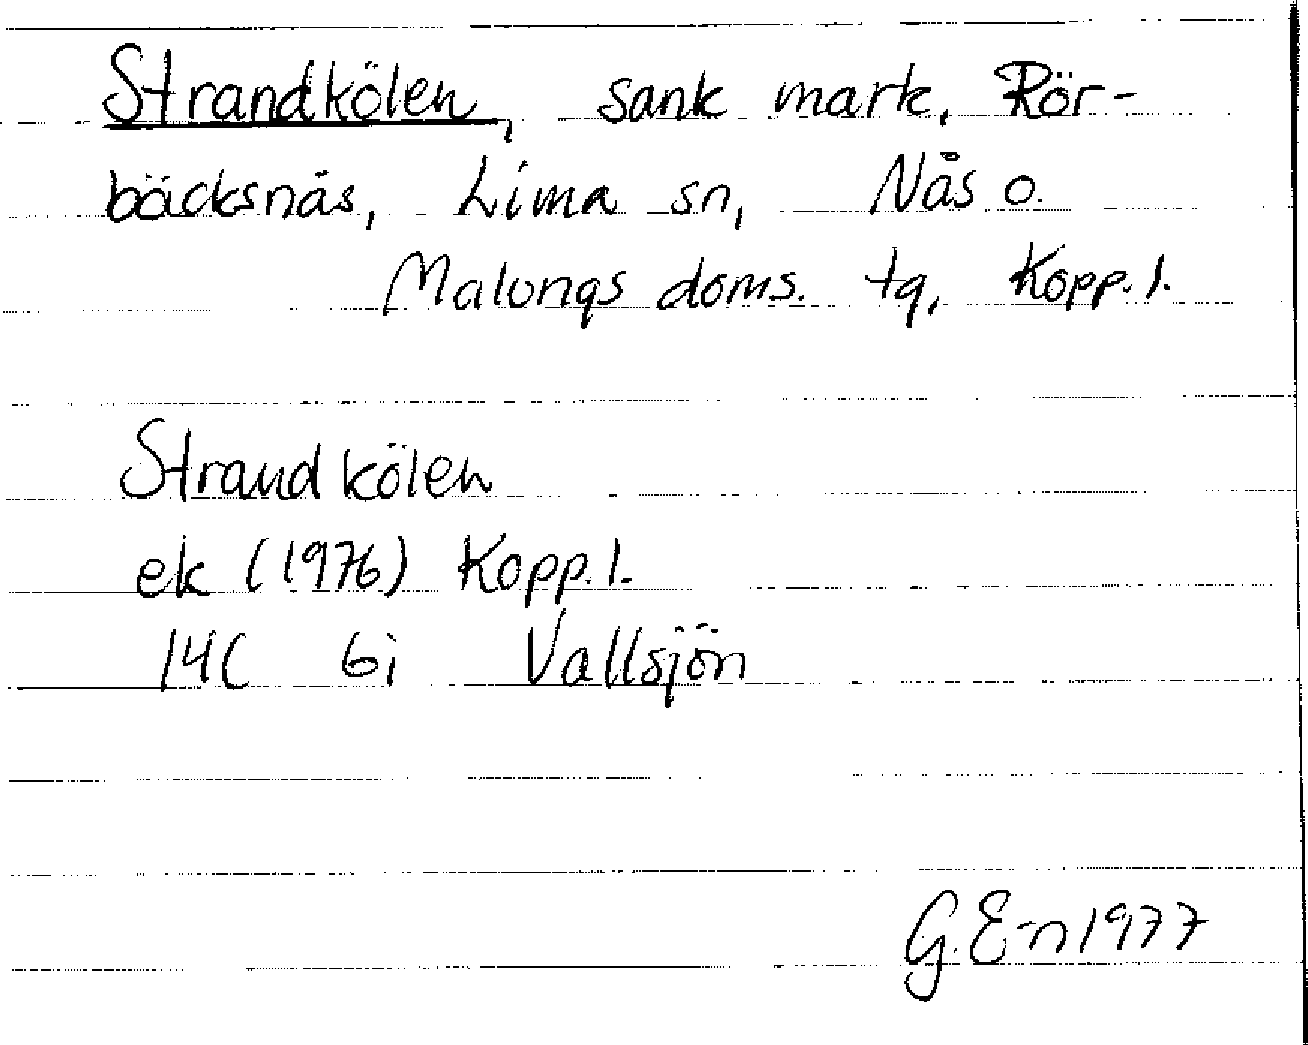 Strandkölen, sank mark, Rör-
bäcksnäs, Lima sn, Nås o.
Malungs doms. tg, Kopp. l.
Strandkölen
ek (1976) Kopp. l.
14C 6i Vallsjön
G. E-n 1977